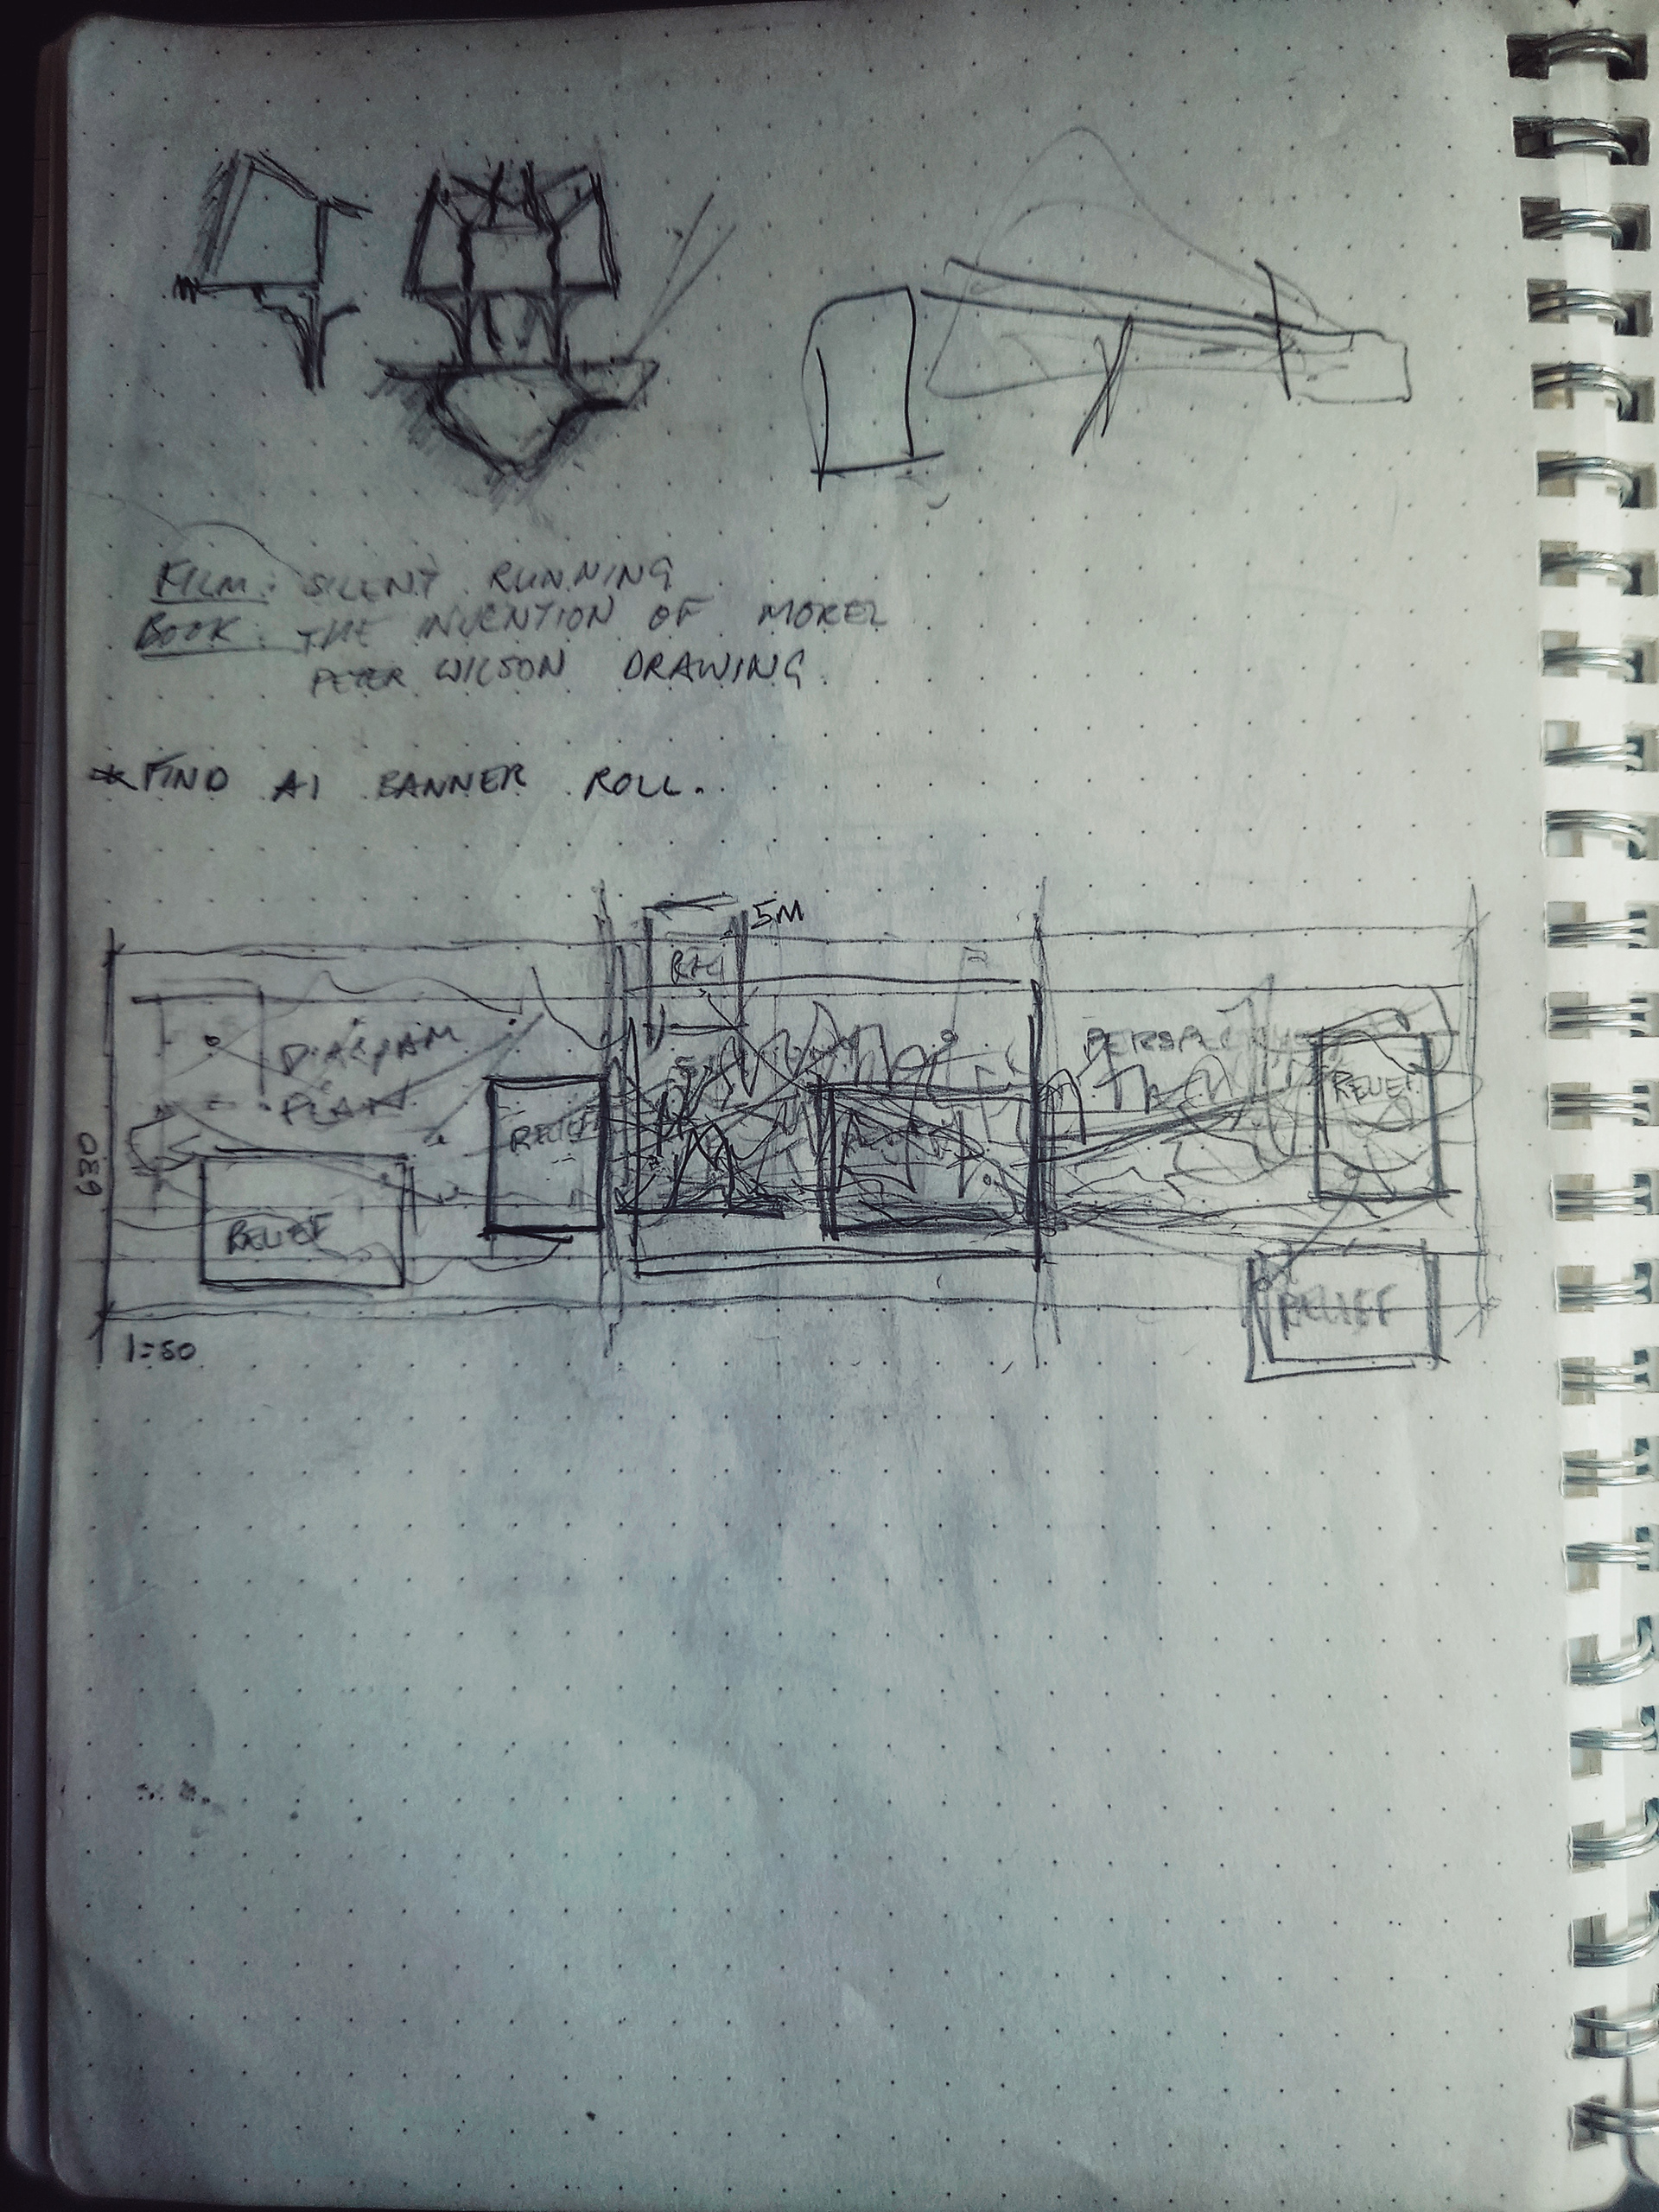 FILM: SILENT RUNNING
BOOK: THE INVENTION OF MOREL
PETER WILSON DRAWING.
* FIND A1 BANNER ROLL.
5M
REL
DIAGRAM
PLAN
PERSPECTIVE
RELIEF
RELIEF
RELIEF
RELIEF
1:50